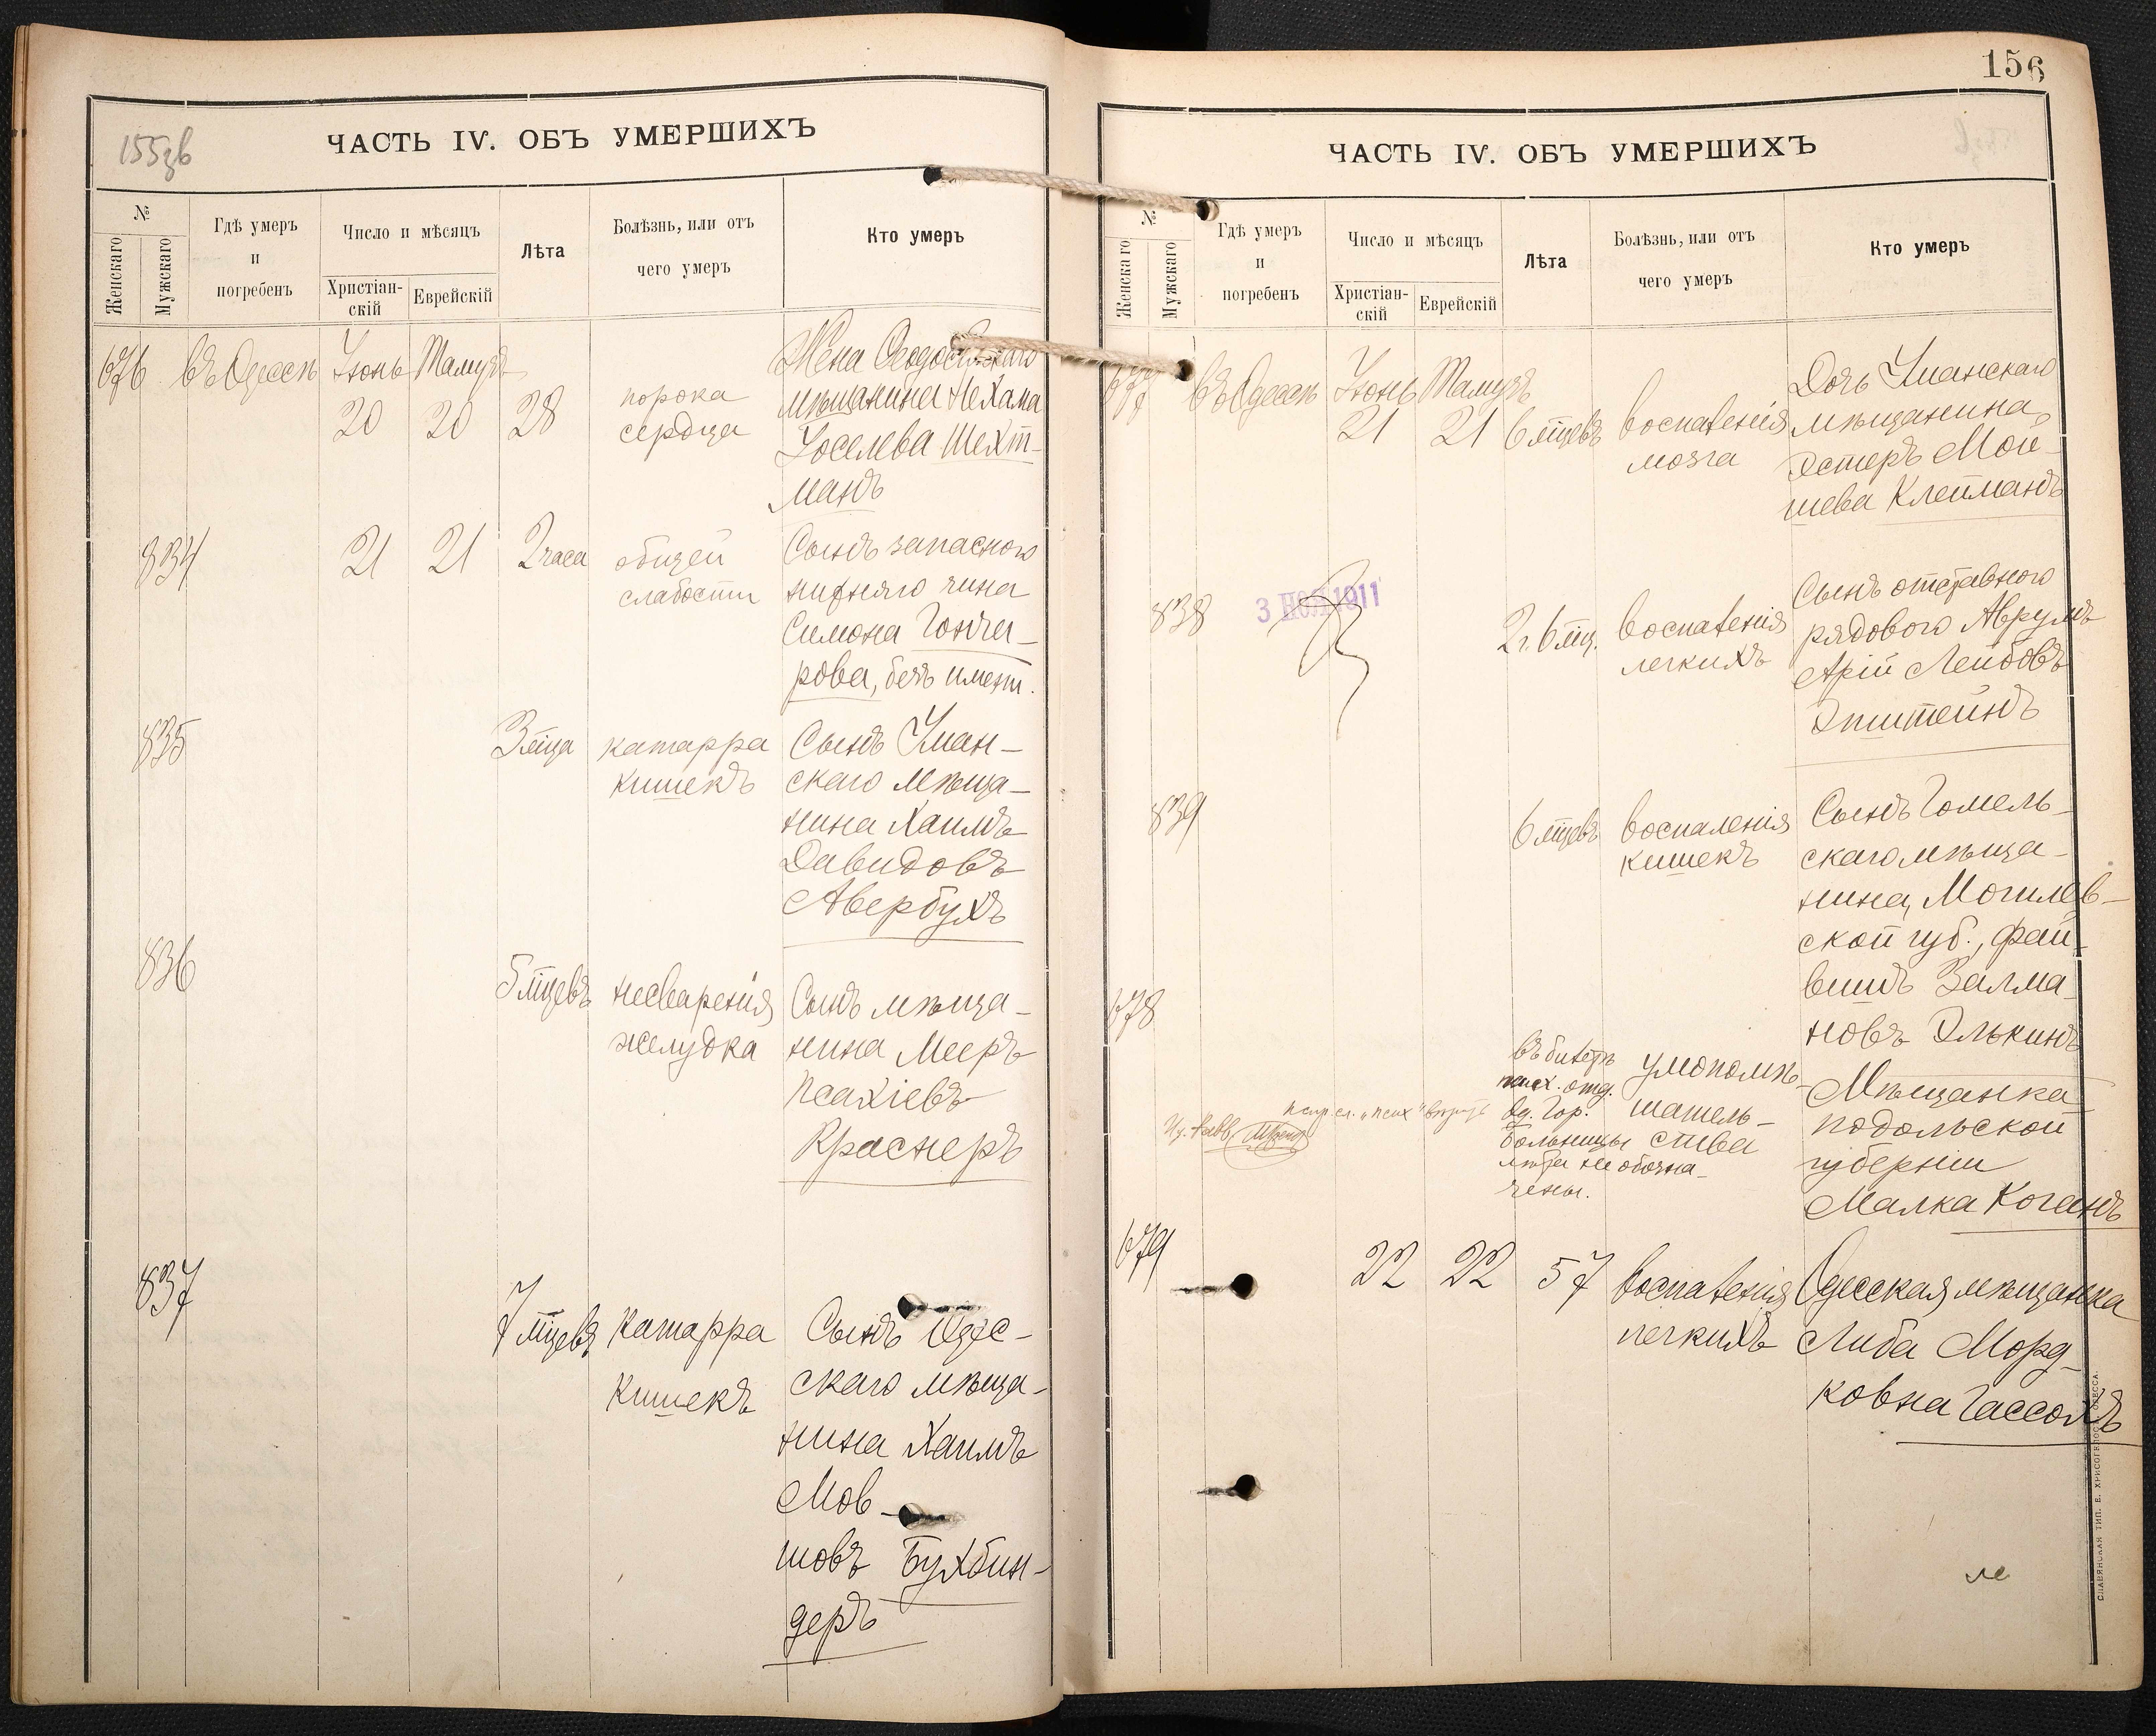 155зв
ЧАСТЬ IV. ОБЪ УМЕРШИХЪ
№
Женскаго
Мужскаго
Гдѣ умеръ
и
погребенъ
Число и мѣсяцъ
Христіан-
скій
Еврейскій
Лѣта
Болѣзнь, или отъ
чего умеръ
Кто умеръ
676 въ Одессѣ Іюнь Тамузъ
20 20 28
порока
сердца
Жена Ѳеодосійскаго
мѣщанина Нехама
Іоселева Шехт-
манъ
834 21 21 2 часа
общей
слабости
Сынъ запасного
нижняго чина
Симона Гонча-
рова, безъ имени.
835
3 м‑ца
катарра
кишекъ
Сынъ Уман-
скаго мѣща-
нина Хаимъ
Давидовъ
Авербухъ
836
5 м‑цевъ
несваренія
желудка
Сынъ мѣща-
нина Мееръ
Псахіевъ
Краснеръ
837
7 м‑цевъ
Катарра
Кишекъ
Сынъ Одес-
скаго мѣща-
нина Хаимъ
Мов-
шовъ Бухбин-
деръ
156
ЧАСТЬ IV. ОБЪ УМЕРШИХЪ
№
Женскаго
Мужскаго
Гдѣ умеръ
и
погребенъ
Число и мѣсяцъ
Христіан-
скій
Еврейскій
Лѣта
Болѣзнь, или отъ
чего умеръ
Кто умеръ
677 въ Одессѣ Іюнь Тамузъ
21 21 6 м‑цевъ
воспаленія
мозга
Дочь Уманскаго
мѣщанина,
Эстеръ Мой-
шева Клейманъ
838
3 1911
2 г. 6 м‑ц.
воспаленія
легкихъ
Сынъ отставного
рядового Аврумъ
Арій Лейбовъ
Эпштейнъ
839
6 м‑цевъ
воспаленія
кишекъ
Сынъ Гомель-
скаго мѣща-
нина, Могилев-
ской губ., Фай-
вишъ Залма-
новъ Элькинъ
678
въ билетѣ
псих. отд.
Од. Гор.
больницы
лѣта не обозна-
чены.
умопомѣ-
шатель-
ства
Мѣщанка
Подольской
губерніи
Малка Коганъ
679 22 22 57
воспаленія
легкихъ
Одесская мѣщанка
Либа Морд-
ковна Гассохъ
СЛАВЯНСКАЯ ТИП. Е. ХРИСОГЕЛОСЪ ОДЕССА.